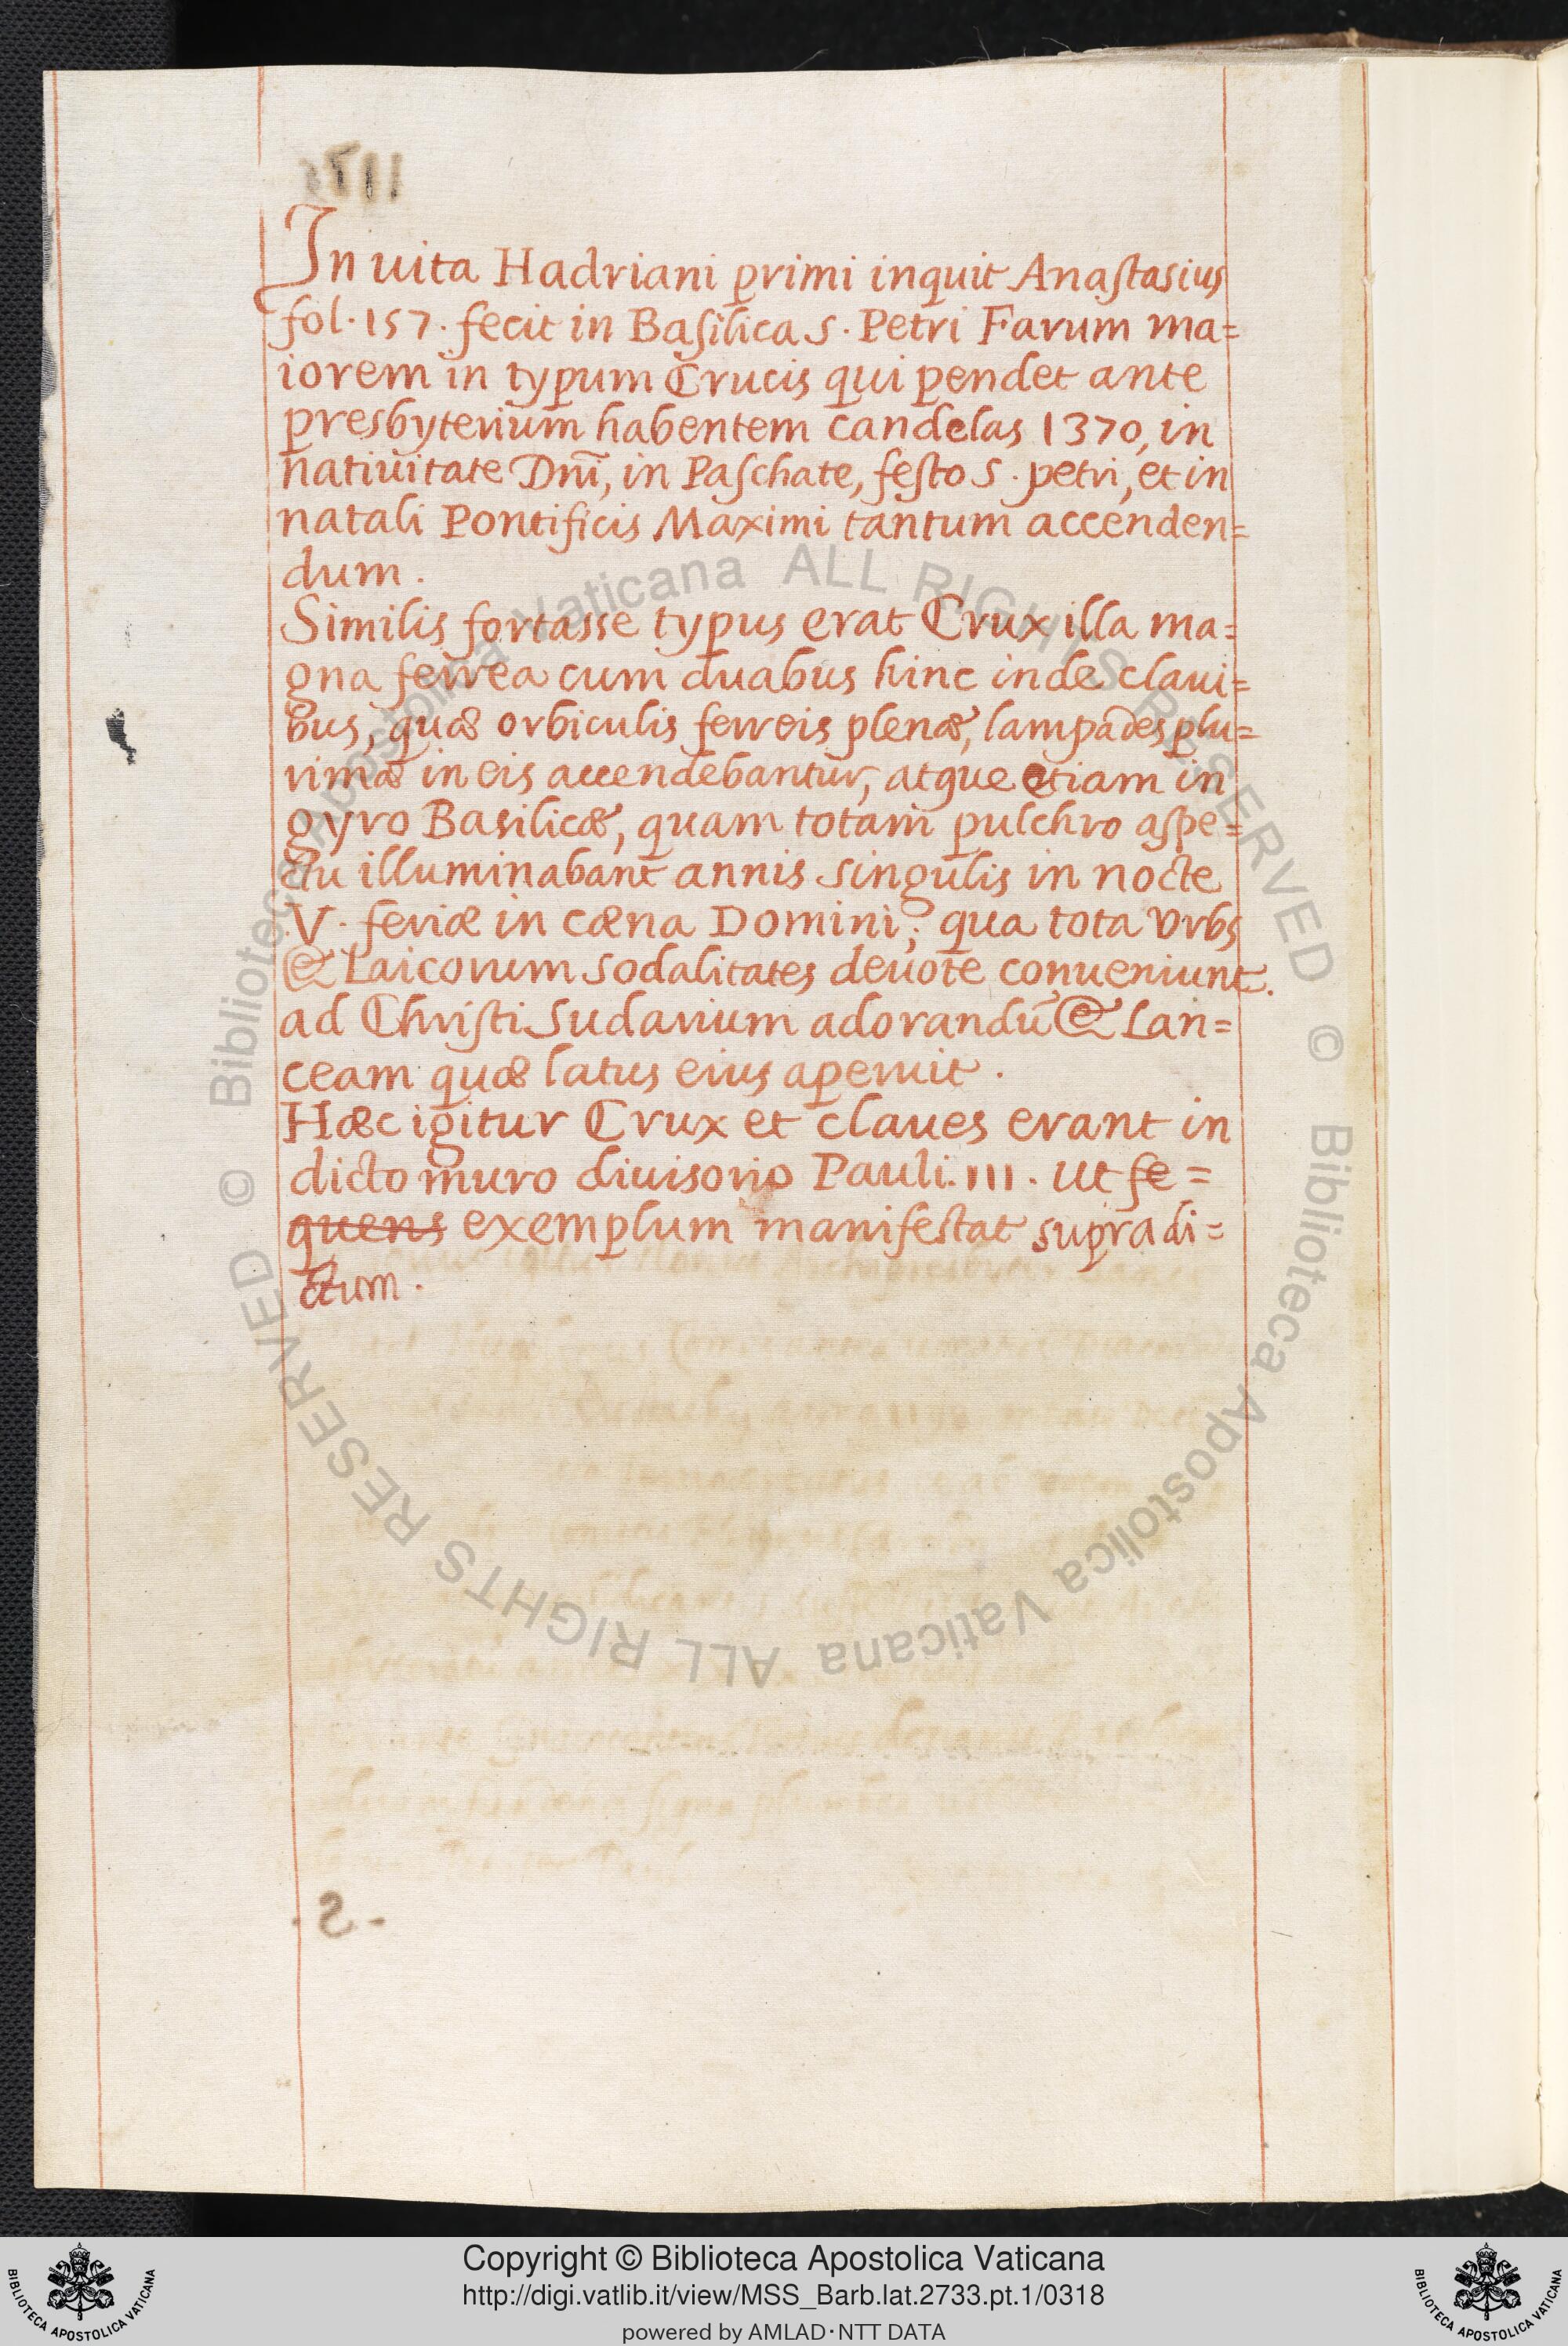 In uita Hadriani primi inquit Anastasius
fol. 157. fecit in Basilica S. Petri Farum ma=
iorem in typum Crucis qui pendet ante
presbyterium habentem candelas 1370, in
natiuitate Dnī, in Paschate, festo S. petri, et in
natali Pontificis Maximi tantum accenden=
dum.
Similis fortasse typus erat Crux illa ma=
gna ferrea cum duabus hinc inde claui=
bus, quæ orbiculis ferreis plenæ, lampades plu=
rimæ in eis accendebantur, atque etiam in
gyro Basilicæ, quam totam pulchro aspe=
ctu illuminabant annis singulis in nocte
V. feriæ in cæna Domini; qua tota Vrbs
& Laicorum sodalitates deuote conueniunt.
ad Christi Sudarium adorandū & Lan=
ceam quæ latus eius aperuit.
Hæc igitur Crux et claues erant in
dicto muro diuisorio Pauli. III. ut se=
quens exemplum manifestat supradi=
ctum.
Copyright © Biblioteca Apostolica Vaticana
http://digi.vatlib.it/view/MSS_Barb.lat.2733.pt.1/0318
powered by AMLAD·NTT DATA
BIBLIOTECA APOSTOLICA VATICANA
BIBLIOTECA APOSTOLICA VATICANA
© Biblioteca Apostolica Vaticana ALL RIGHTS RESERVED
© Biblioteca Apostolica Vaticana ALL RIGHTS RESERVED